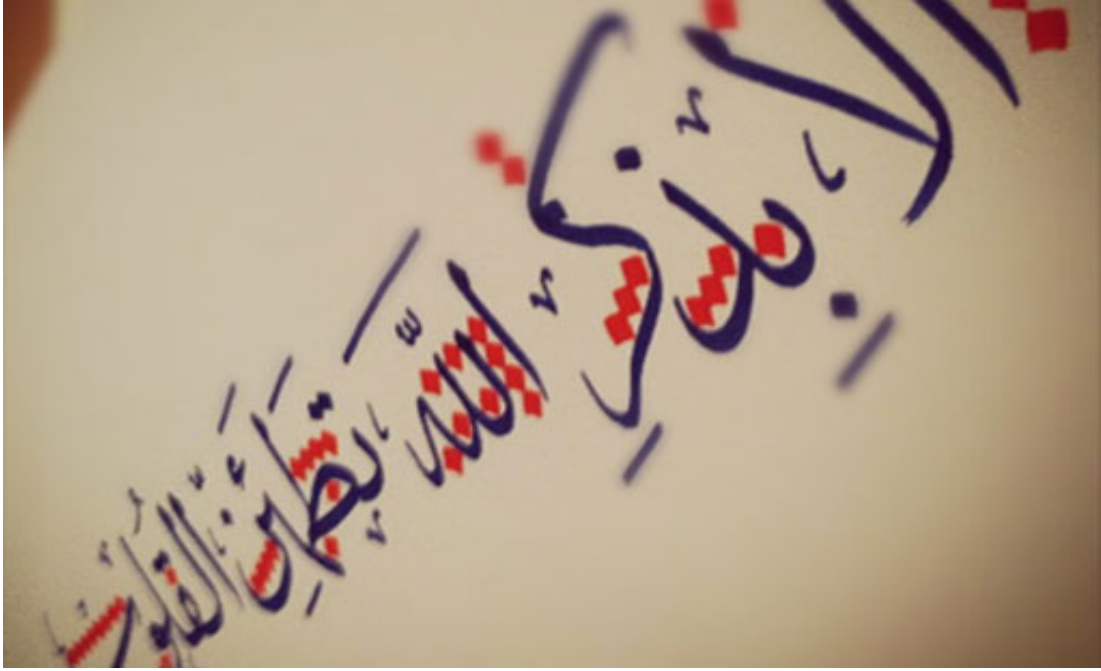 ألا بذكر الله تطمئن القلوب